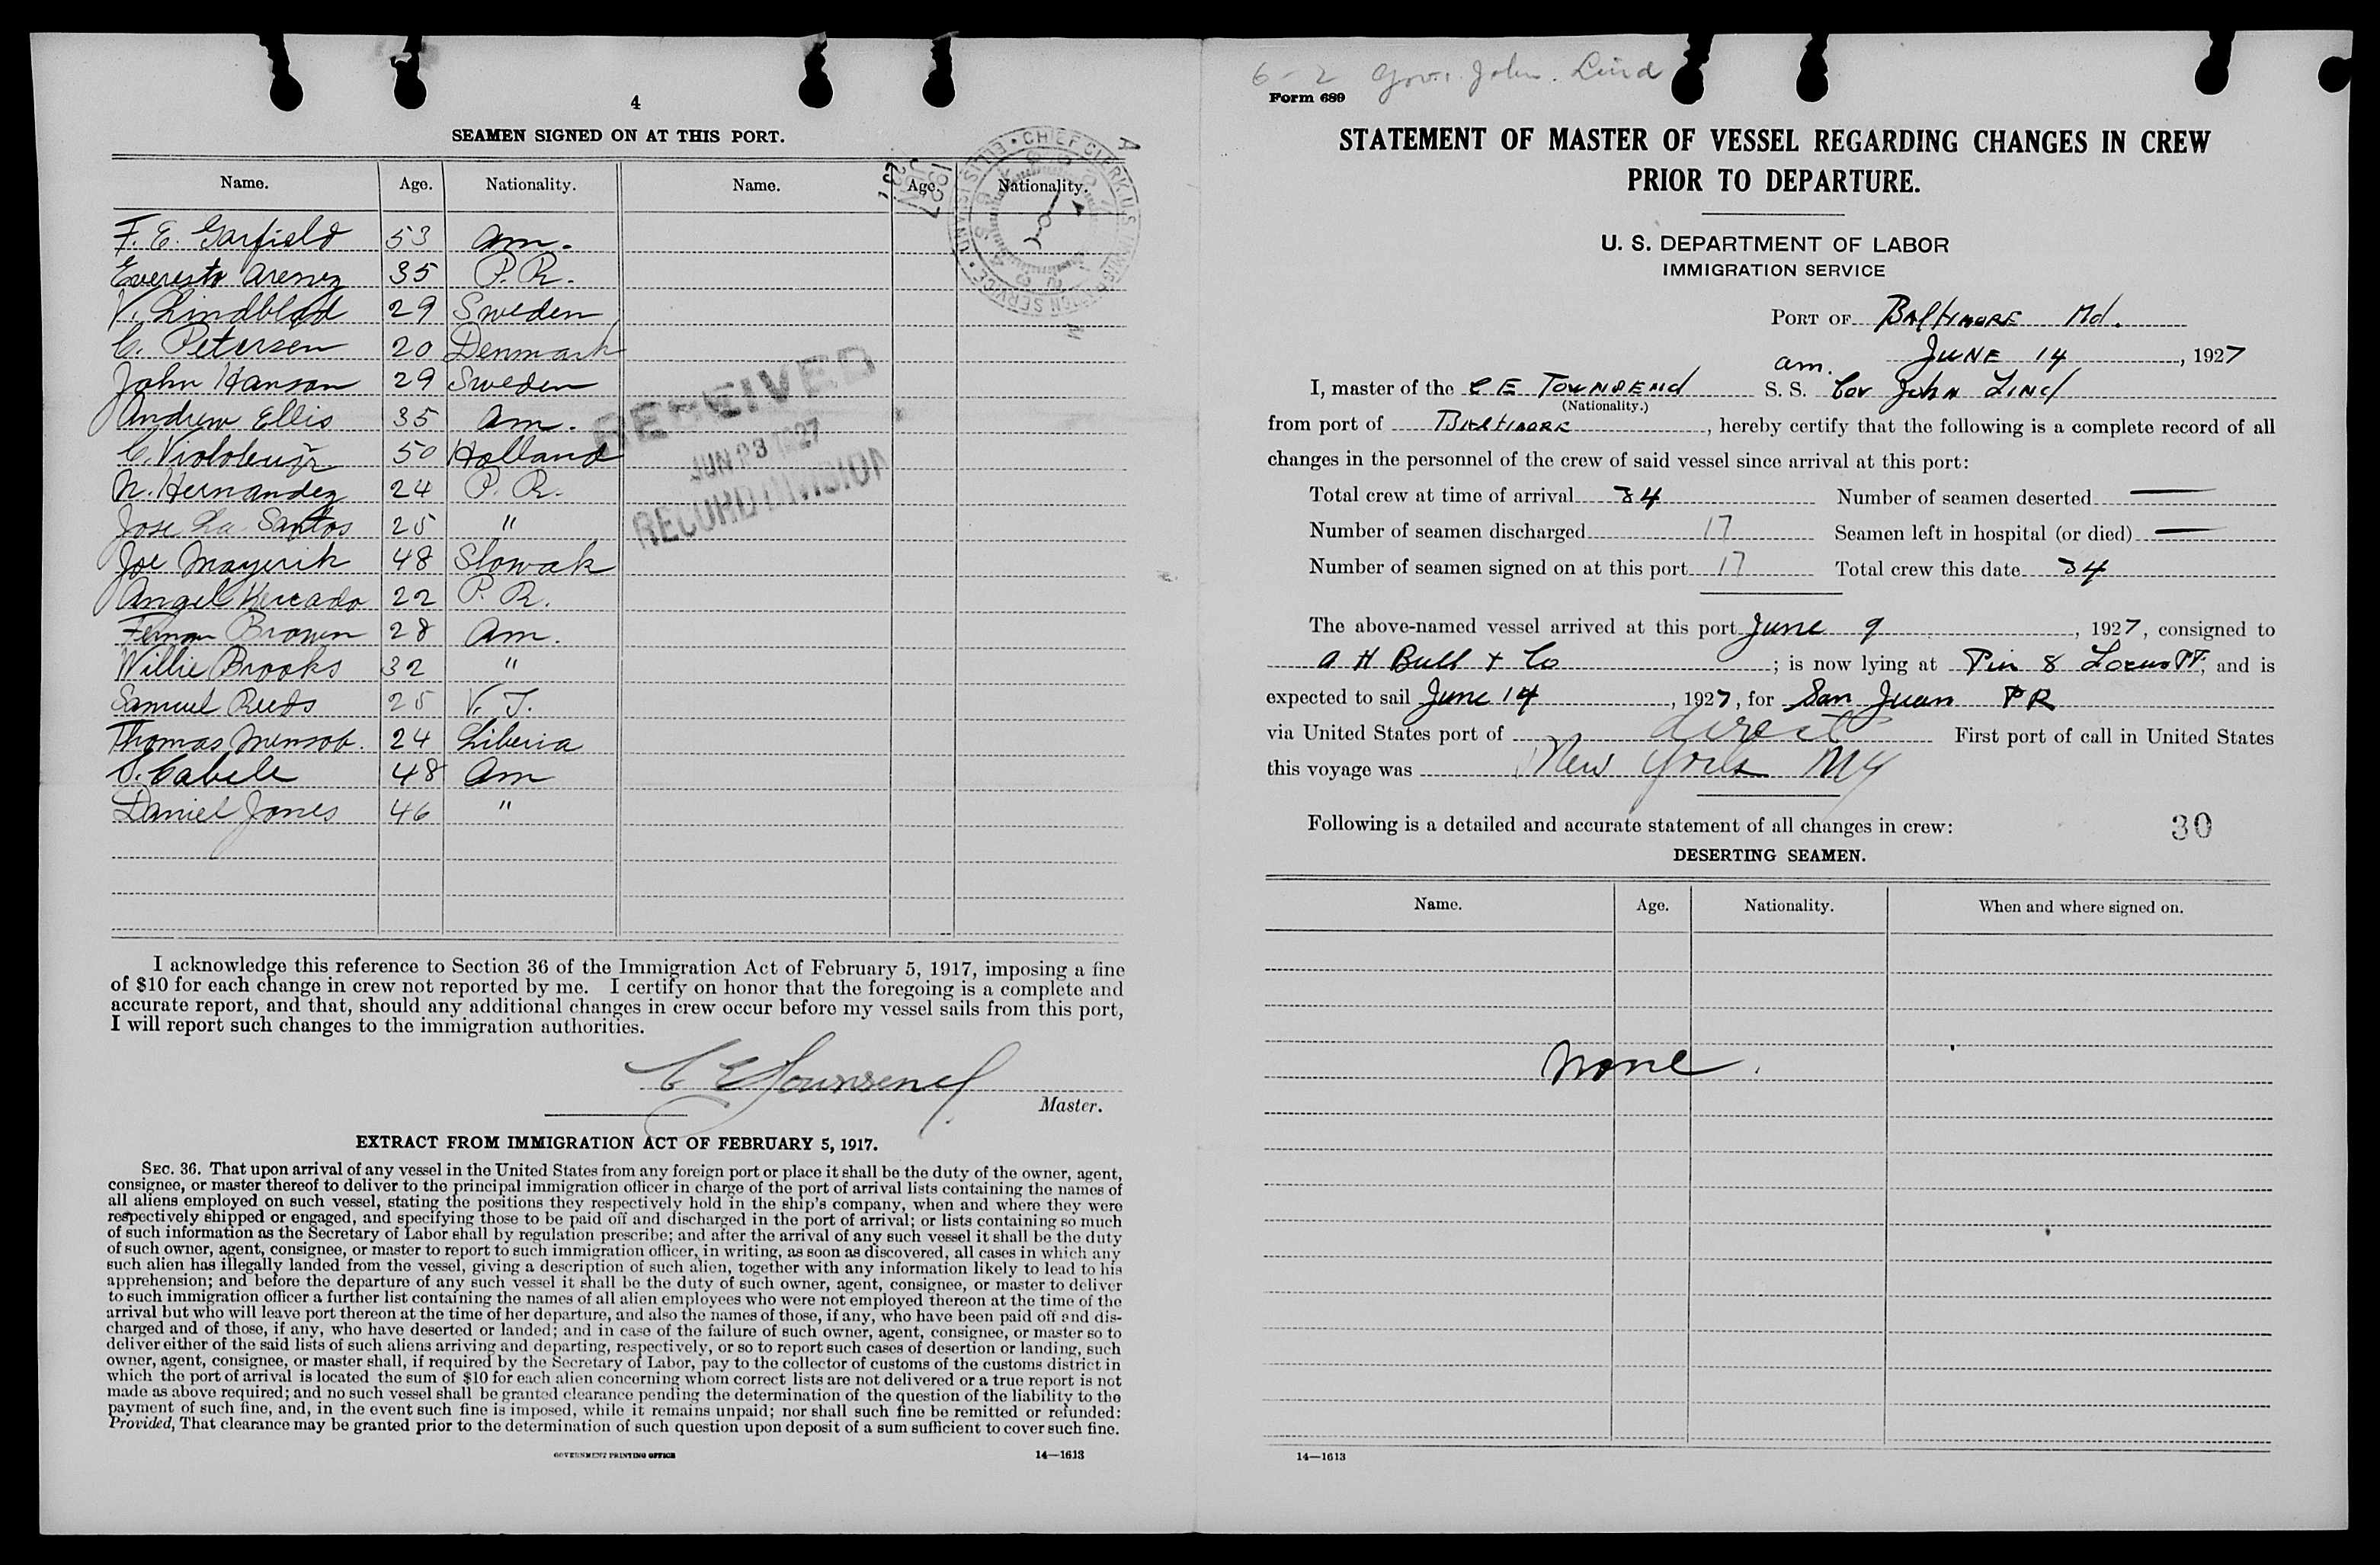 4
SEAMEN SIGNED ON AT THIS PORT.
Name. Age. Nationality. Name. Age. Nationality.
F. E. Garfield 53 Am.
Everisto 35 P. R.
V. Lindblad 29 Sweden
C. Petersen 20 Denmark
John Hanson 29 Sweden
Andrew Ellis 35 Am.
C. 50 Holland
N. Hernandez 24 P. R.
Jose La Santos 25 "
Joe Mayerik 48 Slowak
Angel Mercado 22 P. R.
Brown 28 Am.
Willie Brooks 32 "
Samuel Reeds 25 V. I.
Thomas Mensob. 24 Liberia
S. Cabele 48 Am
Daniel Jones 46 "
RECEIVED
JUN 23 1927
RECORD DIVISION
CHIEF CLERK U.S. IMMIGRATION SERVICE • ELLIS IS
I acknowledge this reference to Section 36 of the Immigration Act of February 5, 1917, imposing a fine
of $10 for each change in crew not reported by me. I certify on honor that the foregoing is a complete and
accurate report, and that, should any additional changes in crew occur before my vessel sails from this port,
I will report such changes to the immigration authorities.
C E Townsend
Master.
EXTRACT FROM IMMIGRATION ACT OF FEBRUARY 5, 1917.
SEC. 36. That upon arrival of any vessel in the United States from any foreign port or place it shall be the duty of the owner, agent,
consignee, or master thereof to deliver to the principal immigration officer in charge of the port of arrival lists containing the names of
all aliens employed on such vessel, stating the positions they respectively hold in the ship's company, when and where they were
respectively shipped or engaged, and specifying those to be paid off and discharged in the port of arrival; or lists containing so much
of such information as the Secretary of Labor shall by regulation prescribe; and after the arrival of any such vessel it shall be the duty
of such owner, agent, consignee, or master to report to such immigration officer, in writing, as soon as discovered, all cases in which any
such alien has illegally landed from the vessel, giving a description of such alien, together with any information likely to lead to his
apprehension; and before the departure of any such vessel it shall be the duty of such owner, agent, consignee, or master to deliver
to such immigration officer a further list containing the names of all alien employees who were not employed thereon at the time of the
arrival but who will leave port thereon at the time of her departure, and also the names of those, if any, who have been paid off and dis-
charged and of those, if any, who have deserted or landed; and in case of the failure of such owner, agent, consignee, or master so to
deliver either of the said lists of such aliens arriving and departing, respectively, or so to report such cases of desertion or landing, such
owner, agent, consignee, or master shall, if required by the Secretary of Labor, pay to the collector of customs of the customs district in
which the port of arrival is located the sum of $10 for each alien concerning whom correct lists are not delivered or a true report is not
made as above required; and no such vessel shall be granted clearance pending the determination of the question of the liability to the
payment of such fine, and, in the event such fine is imposed, while it remains unpaid; nor shall such fine be remitted or refunded:
Provided, That clearance may be granted prior to the determination of such question upon deposit of a sum sufficient to cover such fine.
GOVERNMENT PRINTING OFFICE 14—1613
6 - 2 Gov. John. Lind
Form 689
STATEMENT OF MASTER OF VESSEL REGARDING CHANGES IN CREW
PRIOR TO DEPARTURE.
U. S. DEPARTMENT OF LABOR
IMMIGRATION SERVICE
PORT OF Baltimore Md.
JUNE 14, 1927
I, master of the am. C E Townsend S. S. Gov John Lind
(Nationality.)
from port of Baltimore, hereby certify that the following is a complete record of all
changes in the personnel of the crew of said vessel since arrival at this port:
Total crew at time of arrival 34 Number of seamen deserted —
Number of seamen discharged 17 Seamen left in hospital (or died) —
Number of seamen signed on at this port 17 Total crew this date 34
The above-named vessel arrived at this port June 9, 1927, consigned to
A H Bull + Co; is now lying at Pier 8 Locus PT, and is
expected to sail June 14, 1927, for San Juan PR
via United States port of direct First port of call in United States
this voyage was New York NY
Following is a detailed and accurate statement of all changes in crew: 30
DESERTING SEAMEN.
Name. Age. Nationality. When and where signed on.
None.
14—1613